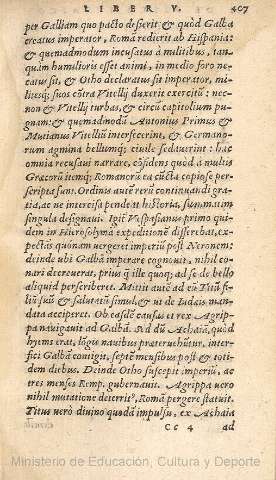 LIBER V. 407
per Galliam quo pacto desierit & quòd Galba
creatus imperator, Romā redierit ab Hispania:
& quemadmodum incusatus a militibus, tan-
quàm humilioris esset animi, in medio foro ne-
catus sit, & Otho declaratus sit imperator, mi-
litesq; suos cōtra Vitellij duxerit exercitū: nec-
non & Vitellij turbas, & circū capitolium pu-
gnam: & quemadmodū Antonius Primus &
Mutianus Vitelliū interfecerint, & Germano-
rum agmina bellumq; ciuile sedauerint: hæc
omnia recusaui narrare, cōfidens quòd a multis
Græcorū itemq; Romanorū ea cūcta copiose per-
scripta sunt. Ordinis autē rerū continuandi gra-
tia, ac ne intercisa pendeat historia, summatim
singula designaui. Igit Vespasianus primo qui-
dem in Hierosolyma expeditionē differebat, ex-
pectās quonam uergeret imperiū post Neronem:
deinde ubi Galbā imperare cognouit, nihil co-
nari decreuerat, priusq̃ ille quoq; ad se de bello
aliquid perscriberet. Mittit autē ad eū Titū fi-
liū suū & salutatū simul, & ut de Iudæis man-
data acciperet. Ob easdē causas et rex Agrip-
pa nauigauit ad Galbā. Ad dū Achaiā, quòd
hyems erat, lōgis nauibus præteruehūtur, inter-
fici Galbā contigit, septē mensibus post & toti-
dem diebus. Deinde Otho suscepit imperiū, ac
tres menses Remp. gubernauit. Agrippa uero
nihil mutatione deterrit⁹, Romā pergere statuit.
Titus uerò diuino quodā impulsu, ex Achaia
CC 4 ad
Ministerio de Educación, Cultura y Deporte